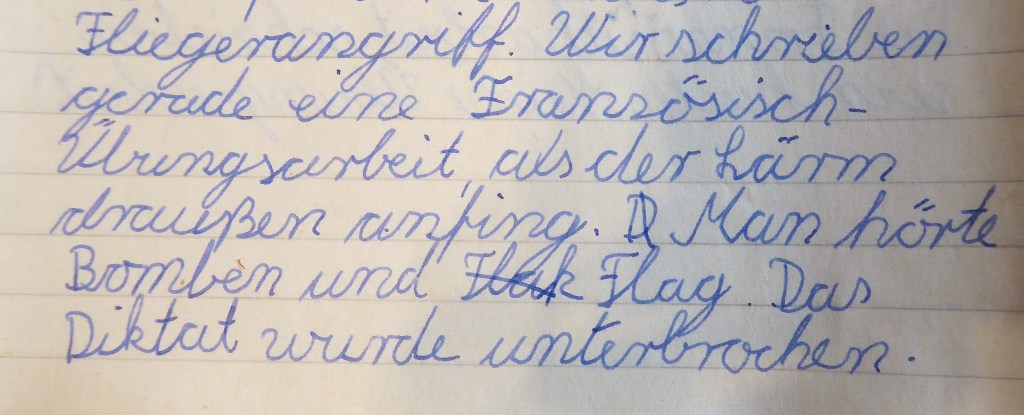 Fliegerangriff. Wir schrieben
gerade eine Französisch-
Übungsarbeit, als der Lärm
draußen anfing. D Man hörte
Bomben und Flak Flag. Das
Diktat wurde unterbrochen.